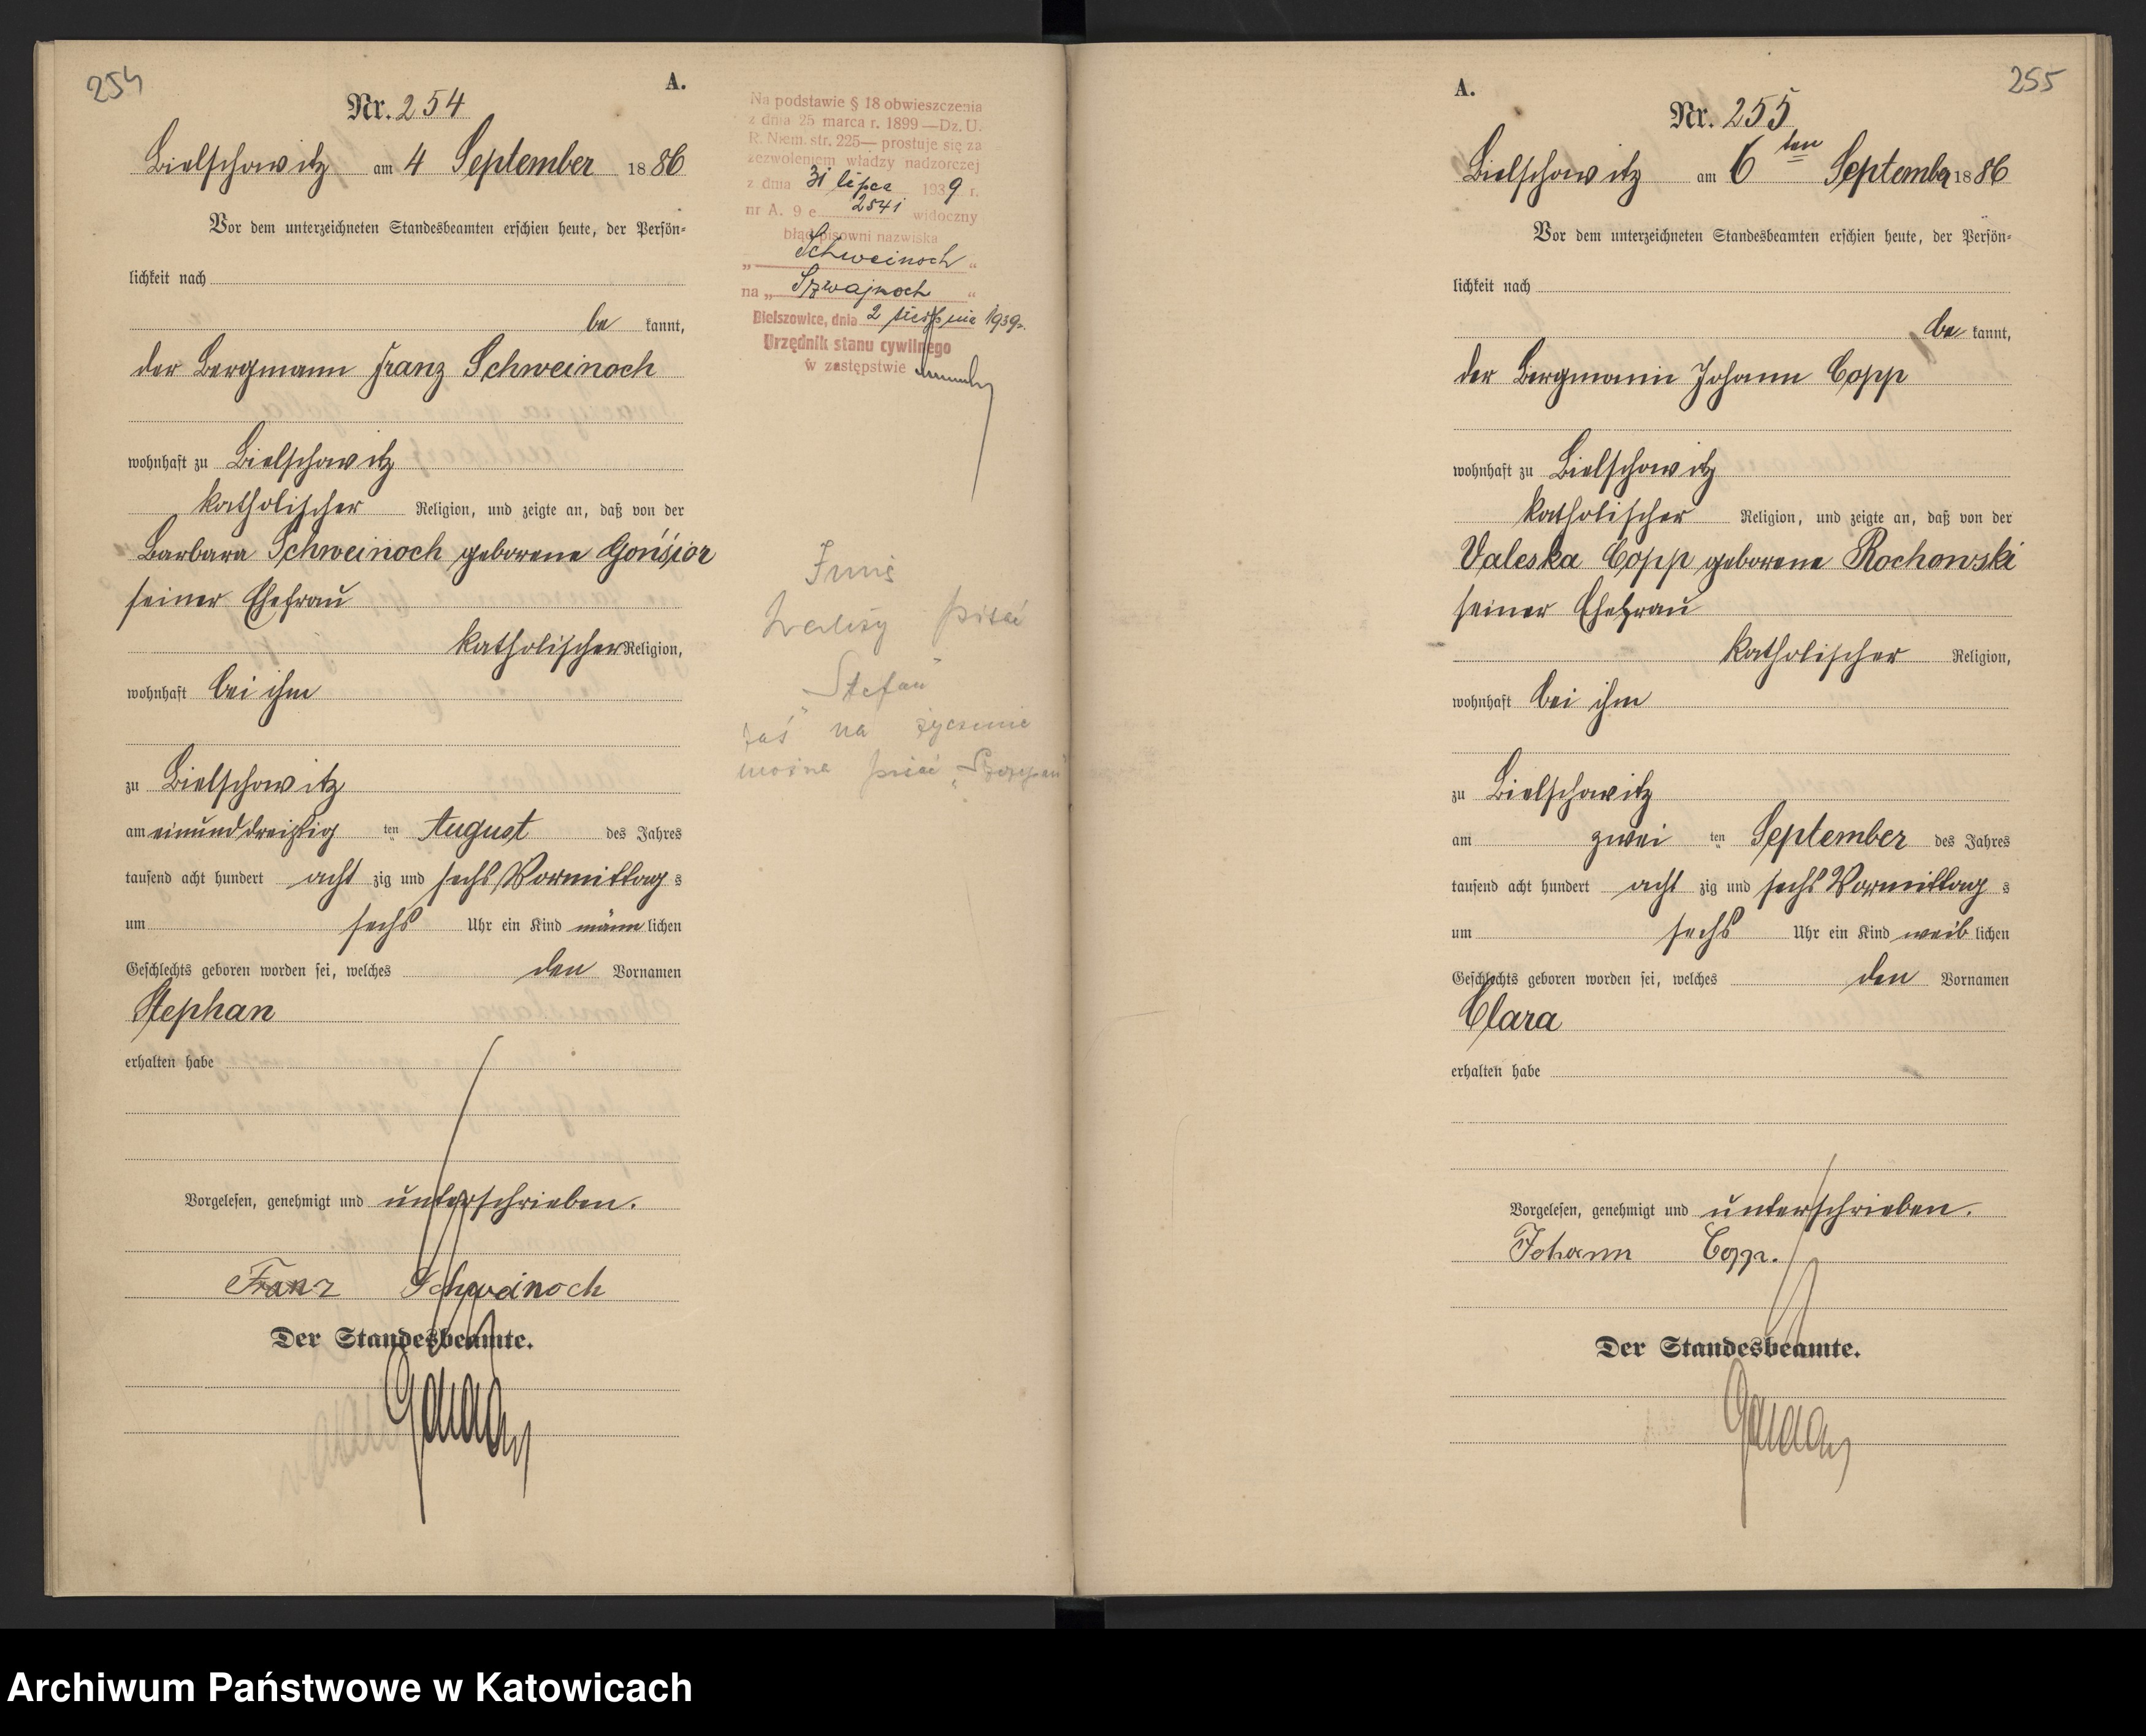 254
A.
Nr. 254
Bielschowitz am 4 September 1886
Vor dem unterzeichneten Standesbeamten erschien heute, der Persön-
lichkeit nach
be kannt,
der Bergmann Franz Schweinoch
wohnhaft zu Bielschowitz
katholischer Religion, und zeigte an, daß von der
Barbara Schweinoch geborene Gonsior
seiner Ehefrau
katholischer Religion,
wohnhaft bei ihm
zu Bielschowitz
am einunddreißig ten August des Jahres
tausend acht hundert acht zig und sechs Vormittag s
um sechs Uhr ein Kind männ lichen
Geschlechts geboren worden sei, welches den Vornamen
Stephan
erhalten habe
Vorgelesen, genehmigt und unterschrieben.
Franz Schweinoch
Der Standesbeamte.
Na podstawie § 18 obwieszczenia
z dnia 25 marca r. 1899 — Dz. U.
R. Niem. str. 225 — prostuje się za
zezwoleniem władzy nadzorczej
z dnia 31 lipca 1939 r.
nr A. 9 e 2541 widoczny
błąd pisowni nazwiska
„ Schweinoch “
na „ Szwajnoch “
Bielszowice, dnia 2 sierpnia 1939.
Urzędnik stanu cywilnego
w zastępstwie
Imię
należy pisać
„Stefan"
zaś na życzenie
można pisać „Szczepan"
255
A.
Nr. 255
Bielschowitz am 6 ten September 1886
Vor dem unterzeichneten Standesbeamten erschien heute, der Persön-
lichkeit nach
be kannt,
der Bergmann Johann Copp
wohnhaft zu Bielschowitz
katholischer Religion, und zeigte an, daß von der
Valeska Copp geborene Rochowski
seiner Ehefrau
katholischer Religion,
wohnhaft bei ihm
zu Bielschowitz
am zwei ten September des Jahres
tausend acht hundert acht zig und sechs Vormittag s
um sechs Uhr ein Kind weib lichen
Geschlechts geboren worden sei, welches den Vornamen
Clara
erhalten habe
Vorgelesen, genehmigt und unterschrieben.
Johann Copp.
Der Standesbeamte.
Archiwum Państwowe w Katowicach